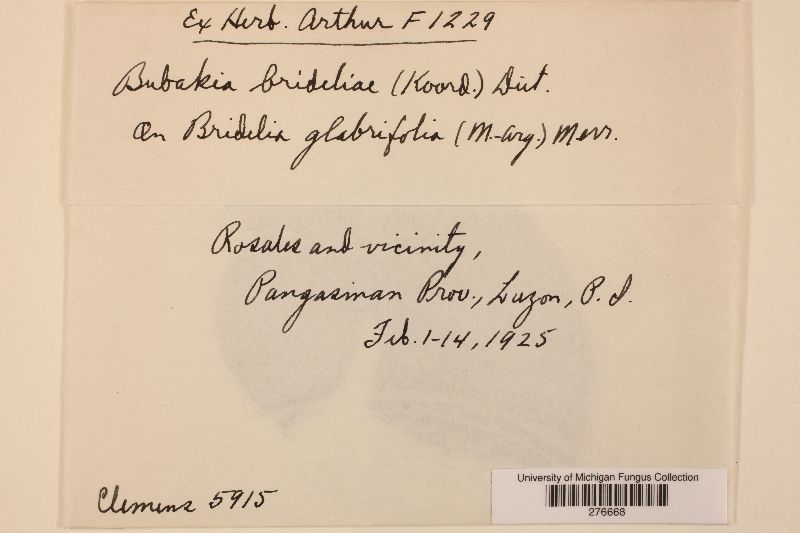 Ex Herb. Arthur F1229
Bubakia brideliae (Koord.) Diet.
On Bridelia glabrifolia (M-Arg.) Merr.
Rosales and vicinity,
Pangasinan Prov., Luzon, P.I.
Feb. 1-14, 1925
Clemens 5915
University of Michigan Fungus Collection
276668